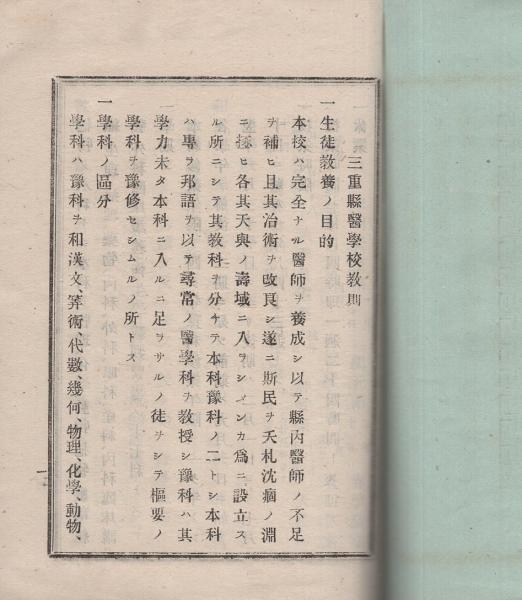 三重縣醫學校教則
一生徒教養ノ目的
本校ハ完全ナル醫師ヲ養成シ以テ縣內醫師ノ不足
ヲ補ヒ且其治術ヲ改良シ遂ニ斯民ヲ夭札沈痼ノ淵
ニ拯ヒ各其天與ノ壽域ニ入ラシメンカ爲ニ設立ス
ル所ニシテ其教科ヲ分チテ本科豫科ノ二トシ本科
ハ專ラ邦語ヲ以テ尋常ノ醫學科ヲ教授シ豫科ハ其
學力未タ本科ニ入ルニ足ラサルノ徒ヲシテ樞要ノ
學科ヲ豫修セシムルノ所トス
一學科ノ區分
學科ハ豫科ヲ和漢文、筭術、代數、幾何、物理、化學、動物、
一